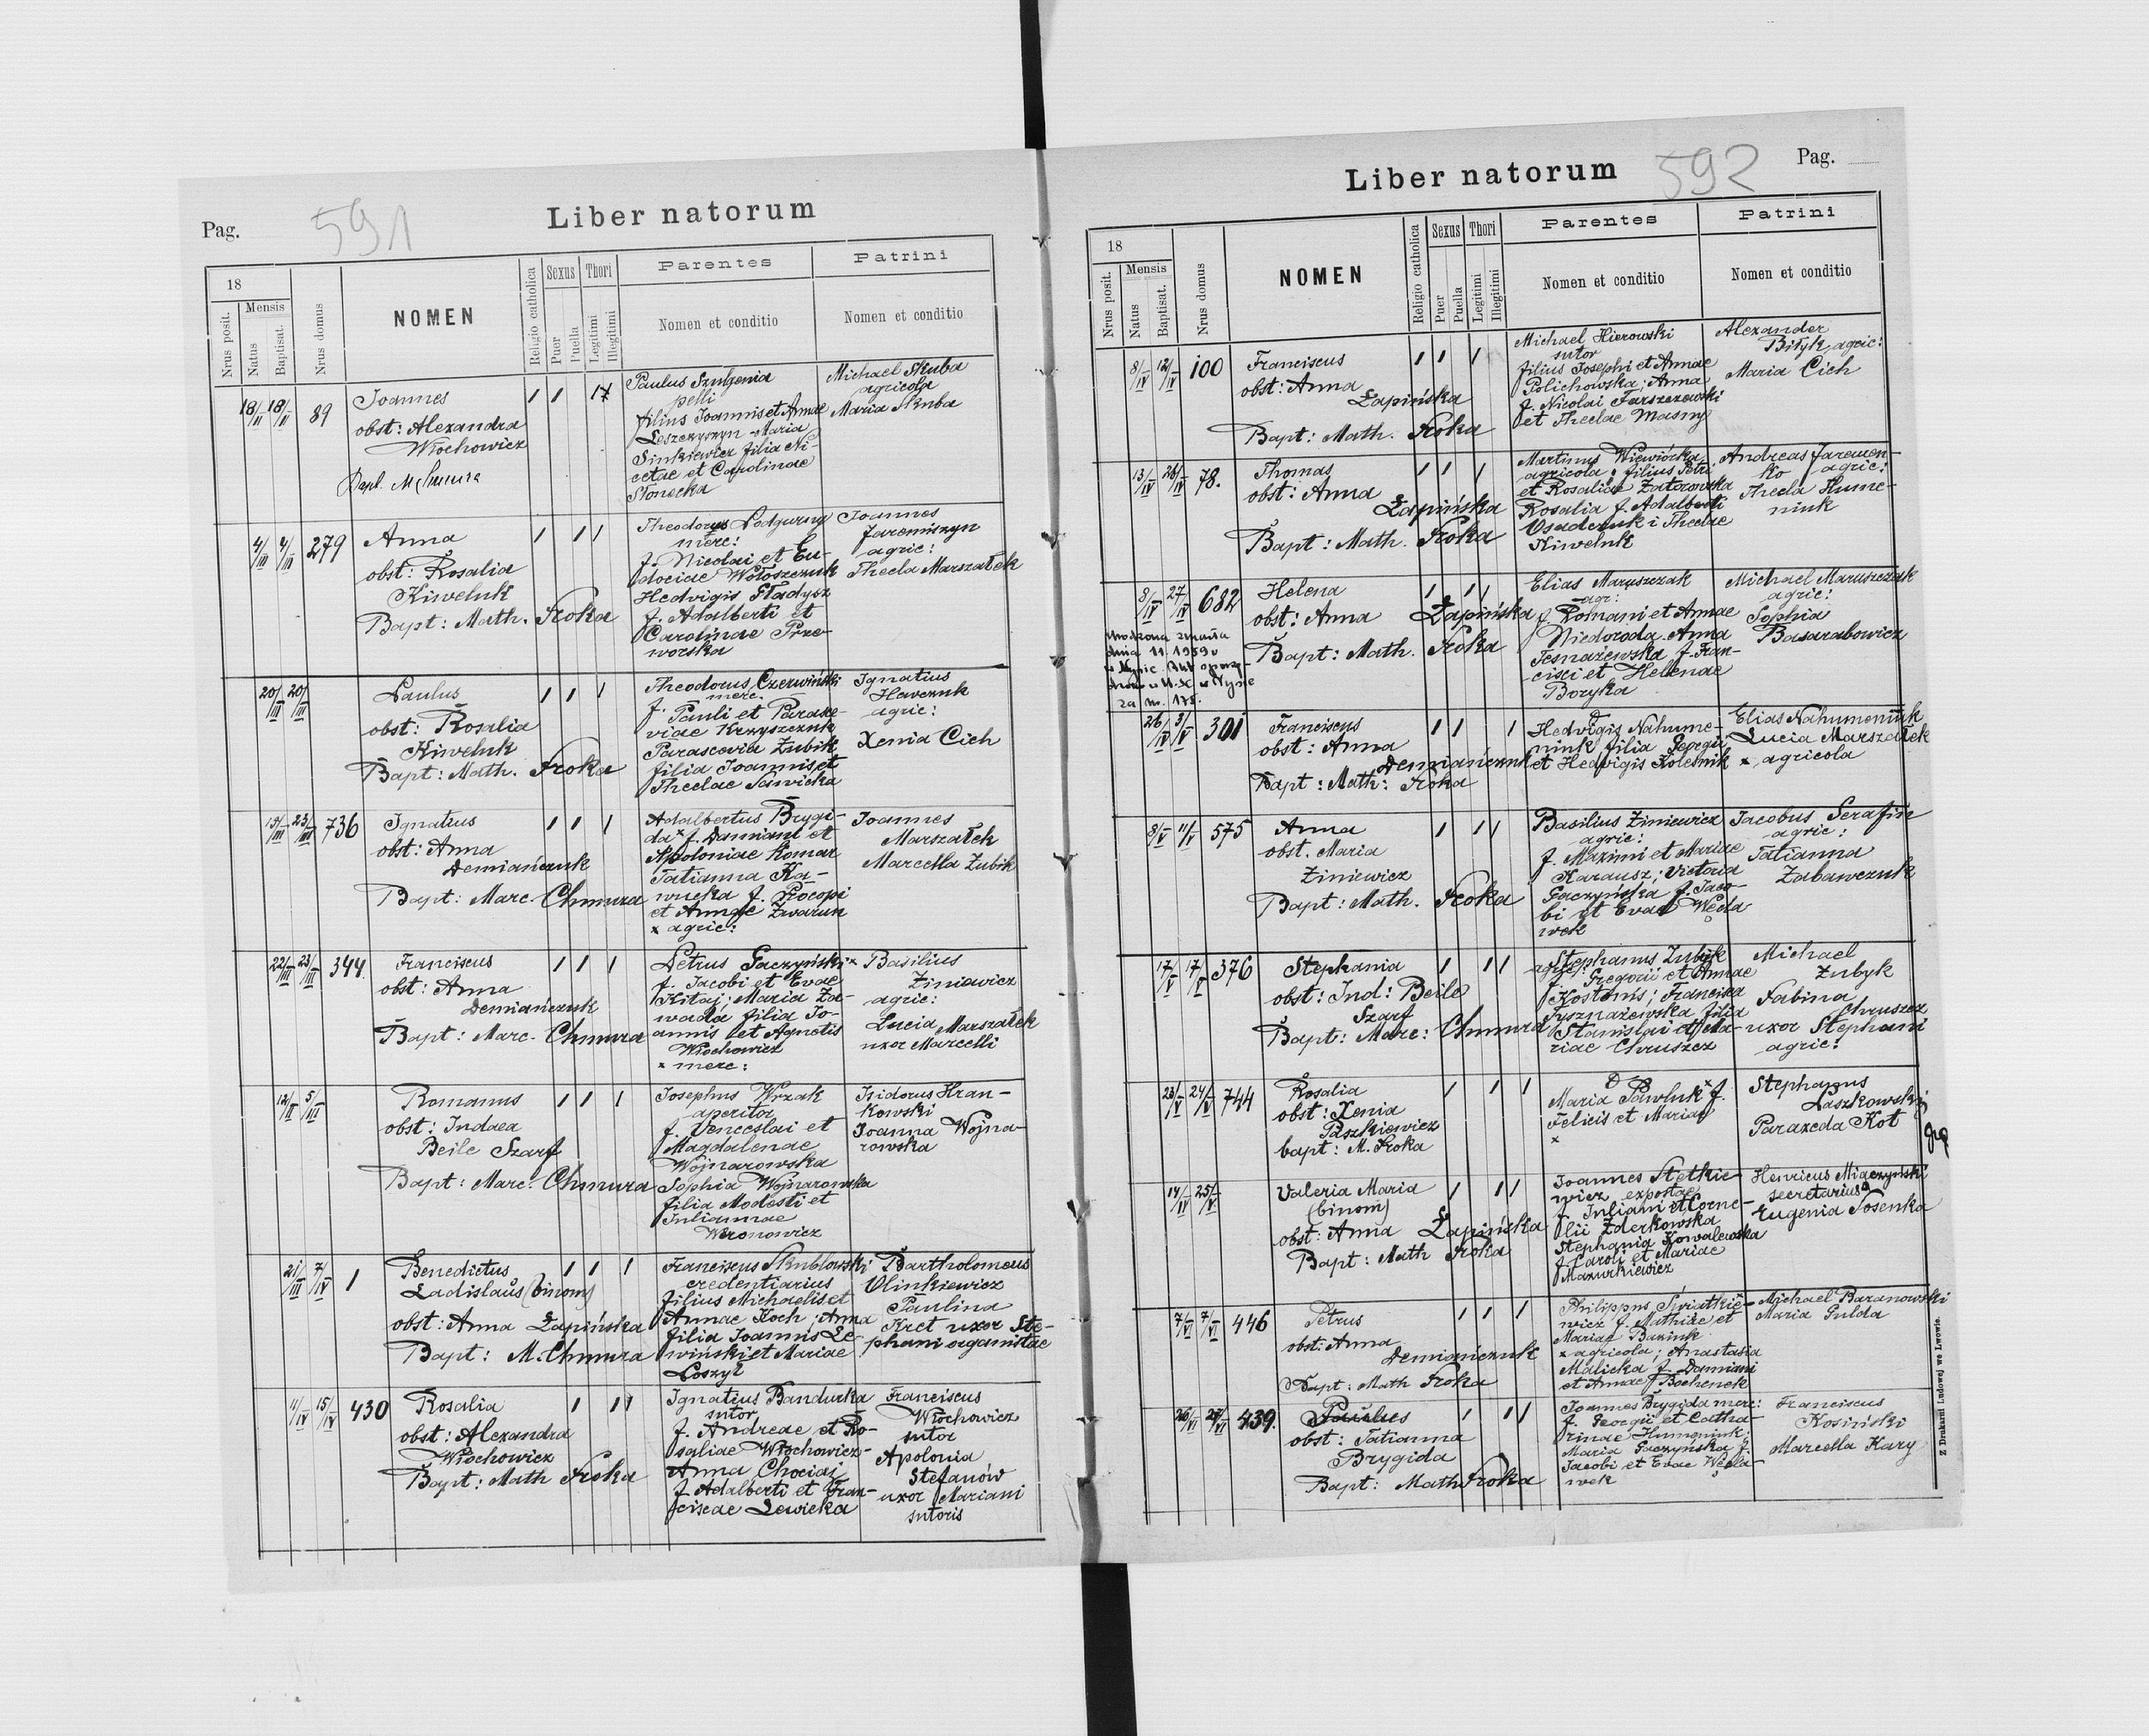 Pag.
591
Liber natorum
18
Nrus posit.
Mensis
Natus
Baptisat.
Nrus domus
NOMEN
Religio catholica
Sexus
Puer
Puella
Thori
Legitimi
Illegitimi
Parentes
Nomen et conditio
Patrini
Nomen et conditio
18/II 18/II 89
Joannes
obst: Alexandra
Włochowicz
Bapt. M. Chmura
Paulus Szulgenia
pelli
filius Joannis et Annae
Leszczyszyn Maria
Sinkiewicz filia Ni-
cetae et Carolinae
Słonecka
Michael Skuba
agricola
Maria Skuba
4/III 4/III 279
Anna
obst: Rosalia
Kiweluk
Bapt: Math. Sroka
Theodorus Podgurny
merc:
f. Nicolai et Eu-
dociae Wołoszczuk
Hedvigis Gładysz
f. Adalberti et
Carolinae Prze-
worska
Joannes
Jaremiszyn
agric:
Thecla Marszałek
20/III 20/III
Paulus
obst: Rosalia
Kiweluk
Bapt: Math. Sroka
Theodorus Czerwiński
merc.
f. Pauli et Parasce-
viae Krzyszczuk
Parascevia Zubik
filia Joannis et
Theclae Sawicka
Ignatius
Hawczuk
agric:
Xenia Cich
15/III 23/III 736
Ignatius
obst: Anna
Demiańczuk
Bapt: Marc. Chmura
Adalbertus Brygi-
da x f. Damiani et
Apoloniae Komar
Tatianna Ka-
wucka f. Procopi
et Annae Zwarun
x agric:
Joannes
Marszałek
Marcella Zubik
22/III 23/III 344.
Franciscus
obst: Anna
Demiańczuk
Bapt: Marc. Chmura
Petrus Gaczyński x
f. Jacobi et Evae
Kitaj; Maria Za-
wada filia Jo-
annis et Agnetis
Włochowicz
x merc:
Basilius
Ziniewicz
agric:
Lucia Marszałek
uxor Marcelli
12/II 5/III
Romanus
obst: Indaea
Beile Szarf
Bapt: Marc. Chmura
Josephus Wrzak
aperitor
f. Venceslai et
Magdalenae
Wojnarowska
Sophia Wojnarowska
filia Modesti et
Juliannae
Weronowicz
Isidorus Hran-
kowski
Joanna Wojna-
rowska
21/III 7/IV 1
Benedictus
Ladislaus (binom)
obst: Anna Łapińska
Bapt: M. Chmura
Franciscus Skublowski
credentiarius
filius Michaelis et
Annae Koch; Anna
filia Joannis Le
wiński et Mariae
Łoszył
Bartholomeus
Olinkiewicz
Paulina
Kret uxor Ste-
phani organistae
11/IV 15/IV 430
Rosalia
obst: Alexandra
Włochowicz
Bapt: Math Sroka
Ignatius Bandurka
sutor
f. Andreae et Ro-
saliae Włochowicz-
Anna Chociaj
f. Adalberti et Fran-
ciscae Lewicka
Franciscus
Włochowicz
sutor
Apolonia
Stefanów
uxor Mariani
sutoris
Liber natorum
592
Pag.
18
Nrus posit.
Mensis
Natus
Baptisat.
Nrus domus
NOMEN
Religio catholica
Sexus
Puer
Puella
Thori
Legitimi
Illegitimi
Parentes
Nomen et conditio
Patrini
Nomen et conditio
8/IV 12/IV 100
Franciscus
obst: Anna
Łapińska
Bapt: Math. Sroka
Michael Hierowski
sutor
filius Josephi et Annae
Polichowska; Anna
f. Nicolai Farszczewski
et Theclae Masny
Alexander
Bityk agric:
Maria Cich
13/IV 26/IV 78.
Thomas
obst: Anna
Łapińska
Bapt: Math. Sroka
Martinus Wiewiórka
agricola; filius Petri
et Rosaliae Zatorowska
Rosalia f. Adalberti
Osadczuk i Theclae
Kiweluk
Andreas Jaremen-
ko agric:
Thecla Hume-
niuk
8/IV 27/IV 682
Helena
obst: Anna Łapińska
Bapt: Math. Sroka
Elias Maruszczak
agr:
f. Romani et Annae
Niedoroda. Anna
Tesnażewska f. Fran-
cisci et Helenae
Boryka
Michael Maruszczak
agric:
Sophia
Basarabowicz
zmarła
dnia 11. 1959 r
za nr. 175.
26/IV 3/V 301
Franciscus
obst: Anna
Demiańczuk
Bapt: Math: Sroka
Hedvigis Nahume-
niuk filia Georgii
et Hedvigis Kolesnik
Elias Nahumeniuk
Lucia Marszałek
x agricola
8/V 11/V 575
Anna
obst. Maria
Ziniewicz
Bapt: Math. Sroka
Basilius Ziniewicz
agric:
f. Maximi et Mariae
Karausz; Victoria
Gaczyńska f. Jaco-
bi et Evae Węcła
wek
Jacobus Serafin
agric:
Tatianna
Zabawczuk
17/V 17/V 376
Stephania
obst: Ind: Beile
Szarf
Bapt: Marc: Chmura
Stephanus Zubyk
agric: f. Gregorii et Annae
Kostanis; Franciska
Tysznażewska filia
Stanislai et Ma-
riae Chruszcz
Michael
Zubyk
Sabina
Chruszcz
uxor Stephani
agric:
23/V 24/V 744
Rosalia
obst: Xenia
Paszkiewicz
bapt: M. Sroka
Maria Pawluk x f.
Felicis et Mariae
x
Stephanus
Laszkowski
Paraxeda Kot
14/IV 25/V
Valeria Maria
(binom)
obst: Anna Łapińska
Bapt: Math Sroka
Joannes Stetkie-
wicz expostae
f. Juliani et Corne-
lii Zderkowska
Stephania Kowalewska
f. Caroli et Mariae
Mazurkiewicz
Henricus Miączyński
secretarius
Eugenia Sosenka
7/VI 7/VI 446
Petrus
obst: Anna
Demiańczuk
Bapt: Math Sroka
Philippus Światkie-
wicz f. Mathiae et
Mariae Baziuk
x agricola; Anastasia
Malicka f. Damiani
et Annae Bochenek
Michael Baranowski
Maria Gulda
26/VI 27/VI 439.
Paulus
obst: Tatianna
Brygida
Bapt: Math Sroka
Joannes Brygida merc:
f. Georgii et Catha-
rinae Humeniuk;
Maria Gaczyńska f.
Jacobi et Evae Węcła-
wek
Franciscus
Kosiński
Marcella Kary
Z Drukarni Ludowej we Lwowie.